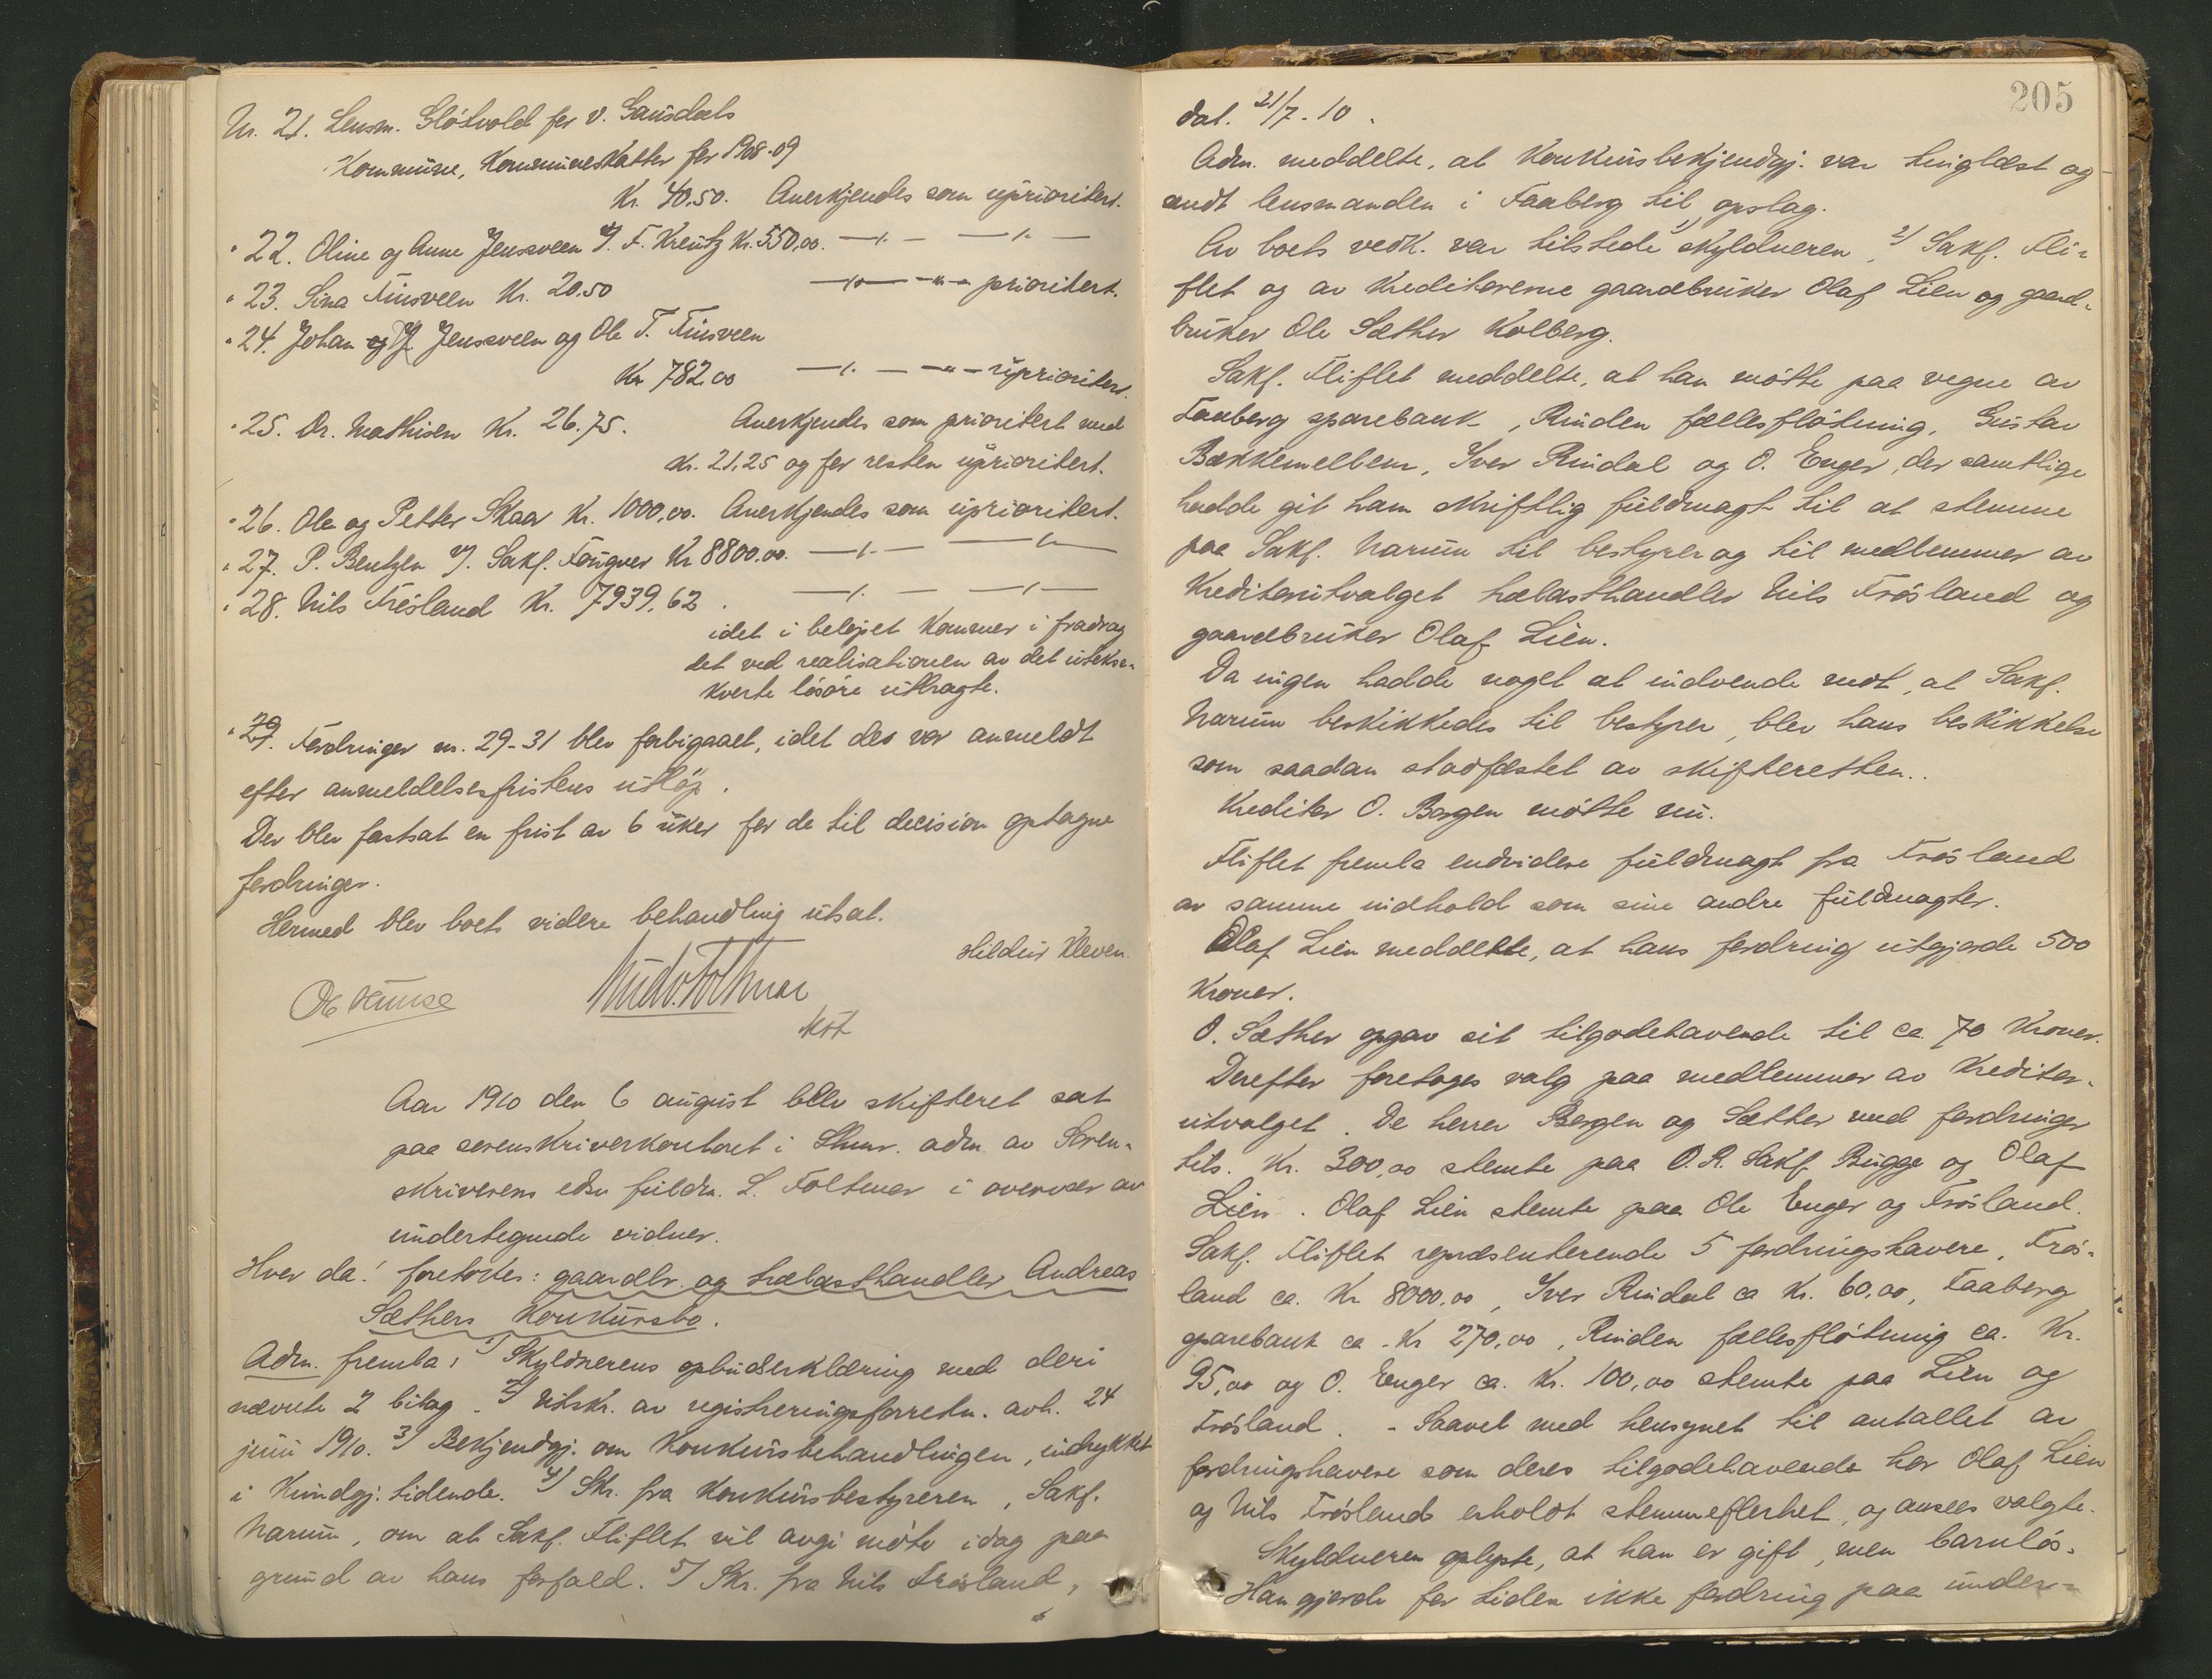 Nr. 21. Lensm. Slåtvold for v. Gausdals
Kommune, Kommuneskatter for 1908-09
Kr. 40.50. Anerkjendes som uprioritert.
" 22. Oline og Anne Jensveen v/ F. Kreutz Kr. 550,00. —"— —"—
" 23. Sina Fiusveen Kr. 20.50 —"— —"— prioritert.
" 24. Johan og J. Jensveen og Ole T. Fiusveen
Kr. 782.00 —"— —"— uprioritert.
" 25. Dr. Mathisen Kr. 26.75. Anerkjendes som prioritert med
Kr. 21,25 og for resten uprioritert.
" 26. Ole og Petter Skaar Kr. 1000,00. Anerkjendes som uprioritert.
" 27. P. Bentzen v/ Sakf. Fougner Kr 8800.00. —"— —"—
" 28. Nils Frösland Kr. 7939.62. —"— —"—
idet i belöpet kommer i fradrag
det ved realisationen av det utekse-
kverte lösöre utbragte.
" 29. Fordringer nr. 29-31 blev forbigaaet, idet des var anmeldt
efter anmeldelsesfristens utlöp.
Der blev fastsat en frist av 6 uker for de til decision optagne
fordringer.
Hermed blev boets videre behandling utsat.
Hildur Kleven
Kst
Aar 1910 den 6 august blev skifteret sat
paa sorenskriverkontoret i Lhmr. adm. av Soren-
skriverens edsv fuldm. L. Foltmar i overvær av
undertegnede vidner.
Hvor da! foretoges: gaardbr. og trælasthandler Andreas
Sæthers Konkursbo.
Adm. fremla: 1) Skyldnerens opbudserklæring med deri
nævnte 2 bilag. 2) Utskr. av registreringsforretn. avh. 24
juni 1910. 3) Bekjendgj. om Konkursbehandlingen, indrykket
i Kundgj. tidende. 4) Skr. fra Konkursbestyreren, Sakf.
Narum, om at Sakf. Fliflet vil avgi möte idag paa
grund av hans forfald. 5) Skr. fra Nils Frösland,
205
dat. 21/7-10.
Adm. meddelte, at Konkursbekjendgj. var tinglæst og
sendt lensmanden i Faaberg til opslag.
Av boets vedk. var tilstede 1) skyldneren, 2) Sakf. Fli-
flet og av Kreditorerne gaardbruker Olaf Lien og gaard-
bruker Ole Sæther Kolberg.
Sakf. Fliflet meddelte, at han mötte paa vegne av
Faaberg sparebank, Rinden fællesflötning, Gustav
Bækkemellem, Iver Rindal og O. Enger, der samtlige
hadde git ham skriftlig fuldmagt til at stemme
paa Sakf. Narum til bestyrer og til medlemmer av
Kreditorutvalget trælasthandler Nils Frösland og
gaardbruker Olaf Lien.
Da ingen hadde noget at indvende mot, at Sakf.
Narum beskikkedes til bestyrer, blev hans beskikkelse
som saadan stadfæstet av skifteretten.
Kreditor O. Bergen mötte nu.
Fliflet fremla endvidere fuldmagt fra Frösland
av samme indhold som sine andre fuldmagter.
Olaf Lien meddelte, at hans fordring utgjorde 500
Kroner.
O. Sæther opgav sit tilgodehavende til ca. 70 Kroner.
Derefter foretoges valg paa medlemmer av Kreditor-
utvalget. De herrer Bergen og Sæther med fordringer
tils. Kr. 300,00 stemte paa O.R. Sakf. Bugge og Olaf
Lien. Olaf Lien stemte paa Ole Enger og Frösland.
Sakf. Fliflet repræsenterende 5 fordringshavere, Frös-
land ca. Kr 8000.00, Iver Rindal ca Kr. 60,00, Faaberg
sparebank ca. Kr 270,00, Rinden fællesflötning ca. Kr.
95,00 og O. Enger ca. Kr. 100,00 stemte paa Lien og
Frösland. - Saavel med hensynet til antallet av
fordringshavere som deres tilgodehavende har Olaf Lien
og Nils Frösland erholdt stemmeflerhet, og ansees valgte.
Skyldneren oplyste, at han er gift, men barnlös.
Han gjorde for tiden ikke fordring paa under-